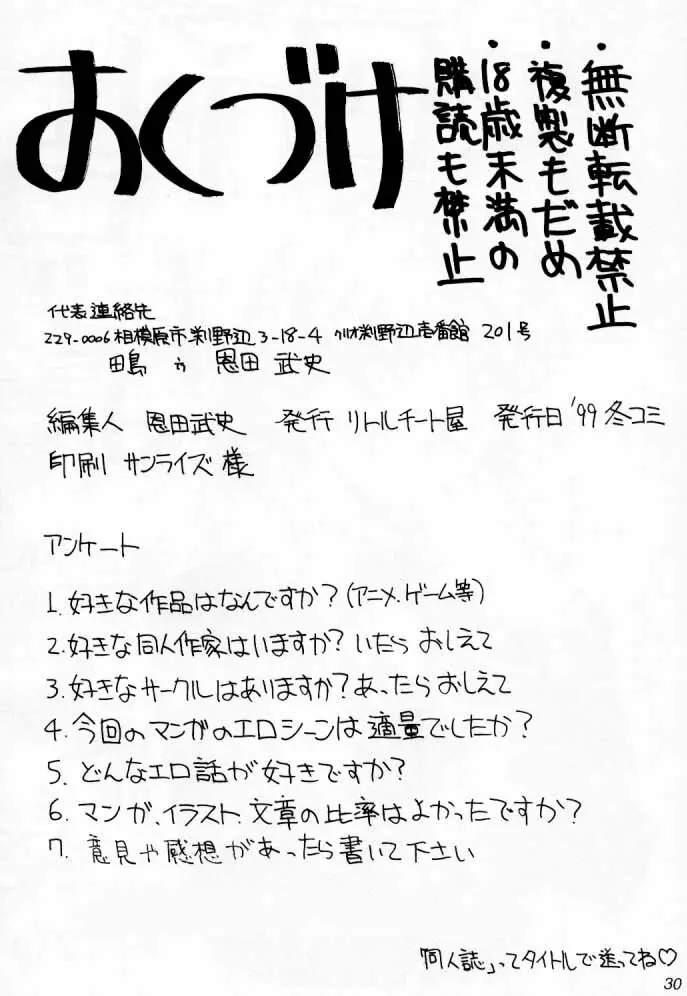 おくづけ
・無断転載禁止
・複製もだめ
・18歳未満の
購読も禁止
代表連絡先
229-0006 相模原市渕野辺 3-18-4 クリオ渕野辺壱番館 201号
恩田 武史
編集人 恩田武史 発行 リトルチート屋 発行日 '99 冬コミ
印刷 サンライズ 様
アンケート
1. 好きな作品はなんですか? (アニメ、ゲーム等)
2. 好きな同人作家はいますか? いたら おしえて
3. 好きなサークルはありますか? あったら おしえて
4. 今回のマンガのエロシーンは適量でしたか?
5. どんなエロ話が好きですか?
6. マンガ、イラスト、文章の比率はよかったですか?
7. 意見や感想があったら書いて下さい
ってタイトルで送ってね♡
30